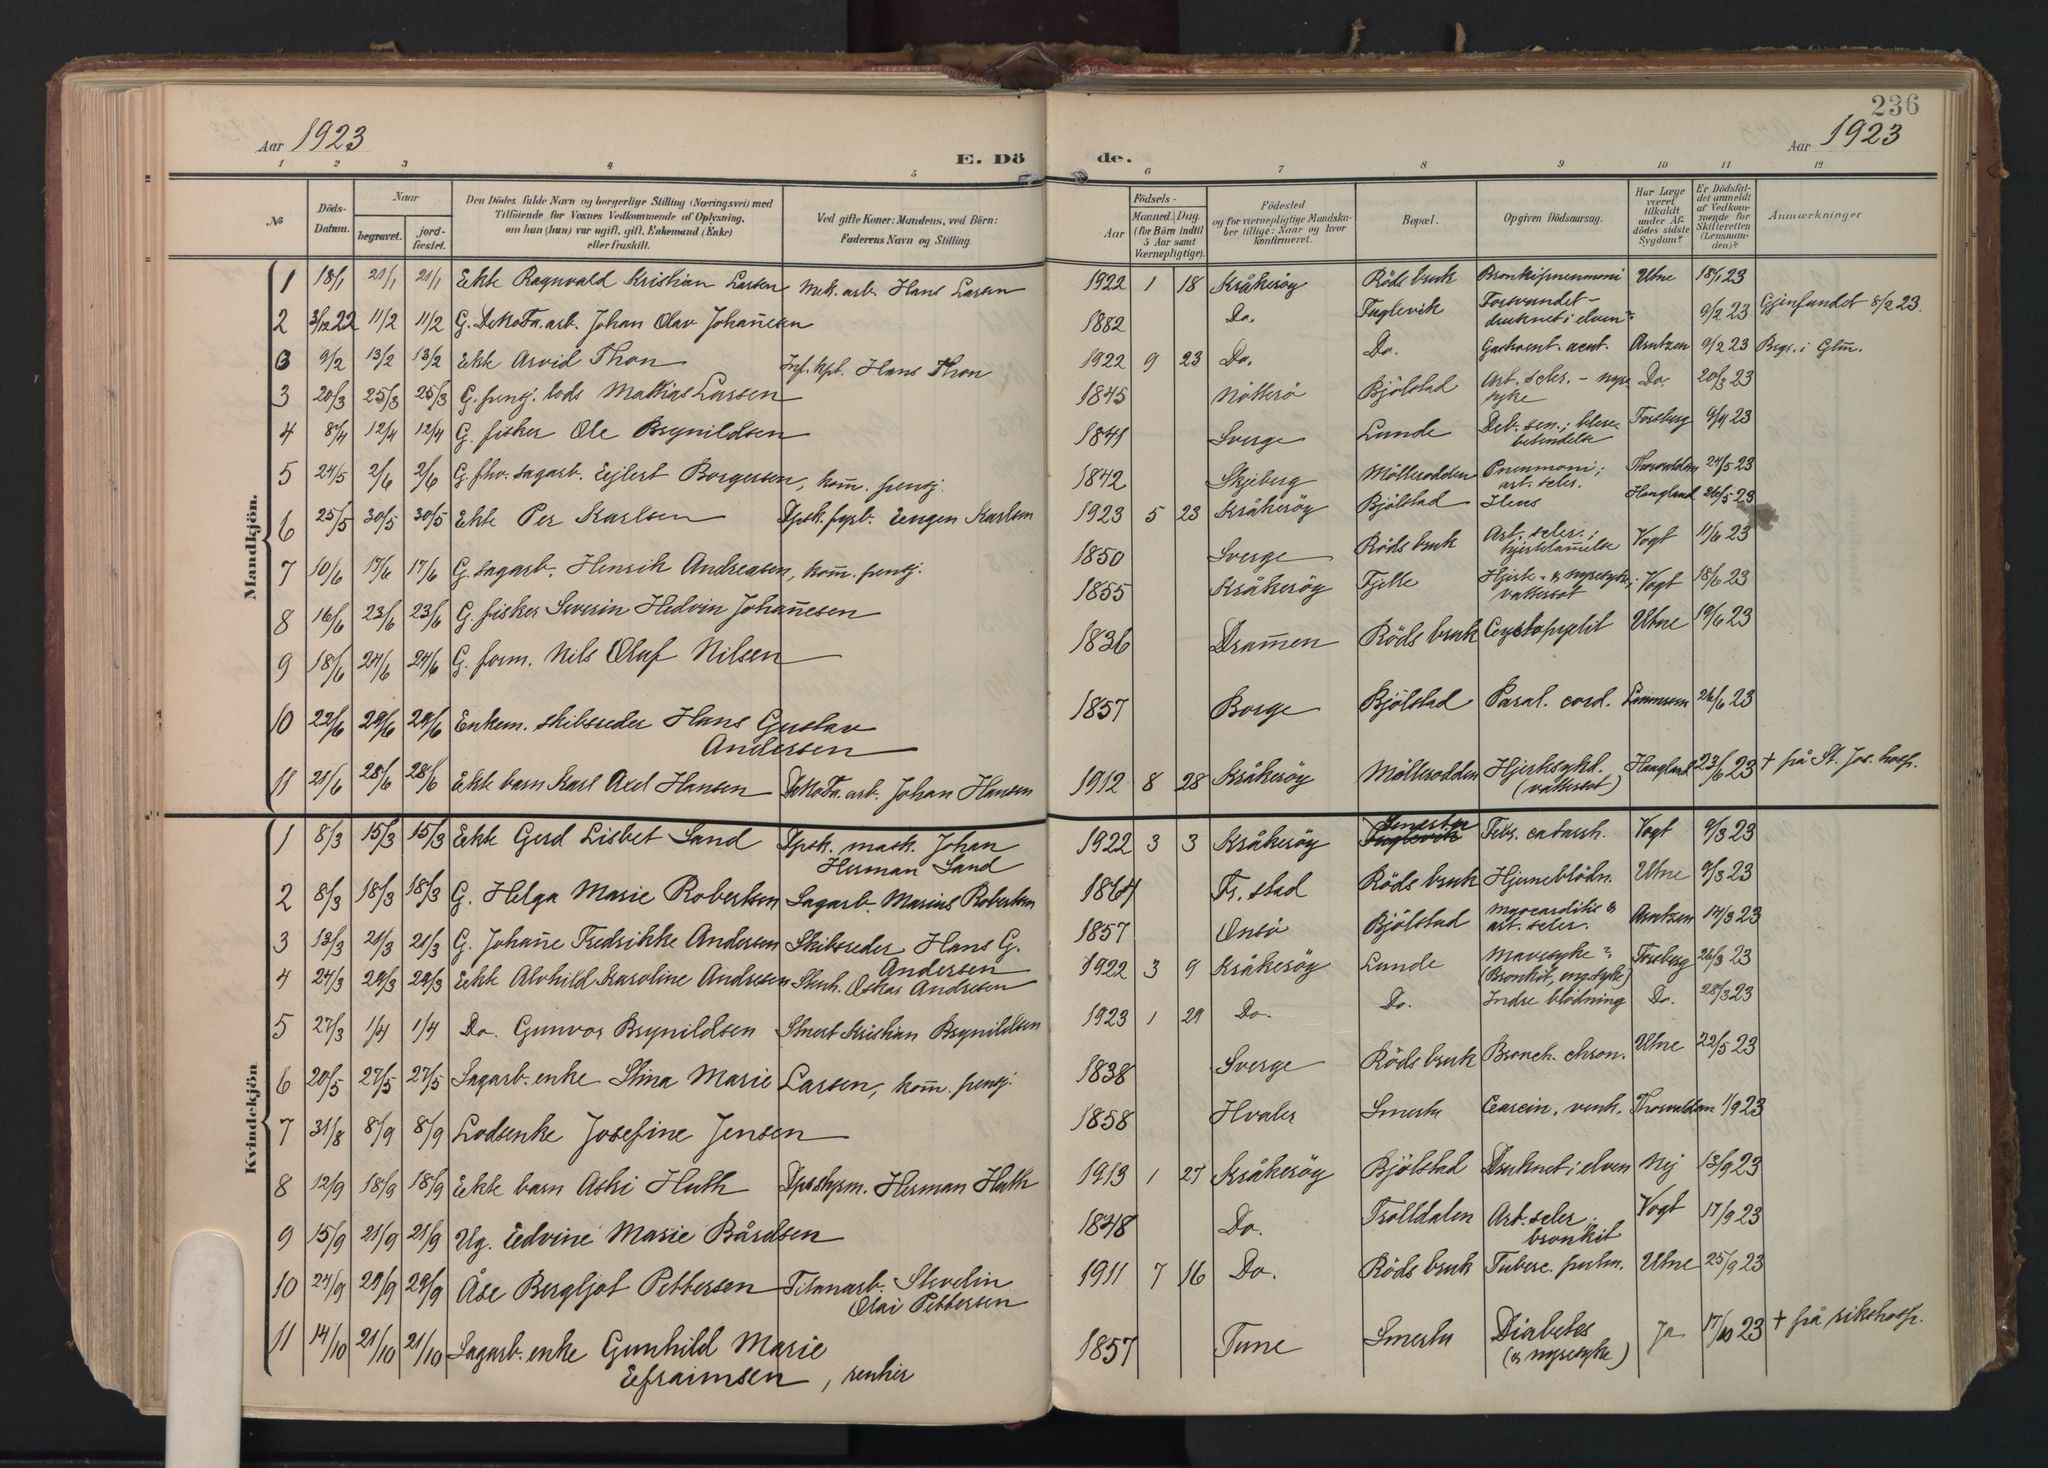 236
Aar 1923
Aar 1923
E. Dö de.
1 2 3 4 5 6 7 8 9 10 11 12
№
Döds-Datum.
Naar
begravet.
jordfæstet.
Den Dödes fulde Navn og borgerlige Stilling (Næringsvei) med
Tilföiende for Voxnes Vedkommende af Oplysning,
om han (hun) var ugift, gift, Enkemand (Enke)
eller fraskilt.
Ved gifte Koner: Mandens, ved Börn:
Faderens Navn og Stilling.
Födsels-
Aar
Maaned. Dag.
(for Börn indtil
5 Aar samt
Værnepligtige).
Födested
og for værnepligtige Mandska-
ber tillige: Naar og hvor
konfirmeret.
Bopæl.
Opgiven Dödsaarsag.
Har Læge
været
tilkaldt
under Af-
dödes sidste
Sygdom?
Er Dödsfal-
det anmeldt
af Vedkom-
mende for
Skifteretten
(Lensman-
den)?
Anmærkninger
Mandkjön.
1 18/1 21/1 21/1 Ekte Ragnvald Kristian Larsen Mek. arb. Hans Larsen 1922 1 18 Kråkeröy Röds bruk Bronkipneumoni Utne 18/1 23
2 3/12 22 11/2 11/2 G. DeNoFa. arb. Johan Olav Johannesen 1882 Do. Fuglevik Forsvundet - druknet i elven 9/2 23 Gjenfundet 8/2 23.
3 9/2 13/2 13/2 Ekte Arvid Thon Hans Thon 1922 9 23 Do. Do. Gastroent. acut. Arntzen 9/2 23 Begr. i Glm.
3 20/3 25/3 25/3 G. pensj. lods Mathias Larsen 1845 Nötterö Bjölstad Art. scler. - nyresyke Do. 20/3 23
4 8/4 12/4 12/4 G. fisker Ole Brynildsen 1841 Sverge Lunde Deb. sen.; blerebetendelse Forsberg 9/4 23
5 24/5 2/6 2/6 G. fhv. sagarb. Eijlert Borgersen, kom. pensj. 1842 Skjeberg Möllerodden Pneumoni; art. scler. Thorvaldsen 24/5 23
6 25/5 30/5 30/5 Ekte Per Karlsen Dpsk. fyrb. Eugen Karlsen 1923 5 23 Kråkeröy Bjölstad Ileus Haugland 26/5 23
7 10/6 17/6 17/6 G. sagarb. Henrik Andreasen, kom. pensj. 1850 Sverge Röds bruk Art. scler.; hjertelammelse Vogt 11/6 23
8 16/6 23/6 23/6 G. fisker Severin Hedvin Johannesen 1855 Kråkeröy Fjelle Hjerte- & nyresyke; vattersot Vogt 18/6 23
9 18/6 24/6 24/6 G. form. Nils Olaf Nilsen 1836 Drammen Röds bruk Cystopyelit Utne 19/6 23
10 22/6 29/6 29/6 Enkem. skibsreder Hans Gustav Andersen 1857 Borge Bjölstad Paral. cord. 26/6 23
11 21/6 28/6 28/6 Ekte barn Karl Axel Hansen DeNoFa. arb. Johan Hansen 1912 8 28 Kråkeröy Mölleodden Hjertesykd. (vattersot) Haugland 23/6 23 + på St. Jos. hosp.
Kvindekjön
1 8/3 15/3 15/3 Ekte Gerd Lisbet Sand Dpsk. mask. Johan Herman Sand 1922 3 3 Kråkeröy Smertu Fuglevik Febr. catarrh. Vogt 9/3 23
2 8/3 18/3 18/3 G. Helga Marie Robertsen Sagarb. Marius Robertsen 1864 Fr. stad Röds bruk Hjerneblödn. Utne 9/3 23
3 13/3 21/3 21/3 G. Johanne Fredrikke Andersen Skibsreder Hans G. Andersen 1857 Onsö Bjölstad Myocarditis & art. scler. Arntzen 14/3 23
4 24/3 29/3 29/3 Ekte Alvhild Karoline Andresen Oskar Andresen 1922 3 9 Kråkeröy Lunde Mavesyke (Bronkit, eng. syke) Forsberg 26/3 23
5 27/3 1/4 1/4 Do. Gunvor Brynildsen Kristian Brynildsen 1923 1 29 Do. Do. Indre blödning Do. 28/3 23
6 20/5 27/5 27/5 Sagarb. enke Stina Marie Larsen, kom. pensj. 1838 Sverge Röds bruk Bronch. chron. Utne 22/5 23
7 31/8 8/9 8/9 Lodsenke Josefine Jensen 1858 Hvaler Smertu Carcin. ventr. Thorvaldsen 1/9 23
8 12/9 18/9 18/9 Ekte barn Aski Huth Dpsstyrm. Herman Huth 1913 1 27 Kråkeröy Bjölstad Druknet i elven Nej 13/9 23
9 15/9 21/9 21/9 Ug. Edvine Marie Bårdsen 1848 Do. Trolldalen Art. scler.; bronkit Vogt 17/9 23
10 24/9 29/9 29/9 Åse Bergljot Pettersen Titanarb. Olai Pettersen 1911 7 16 Do. Röds bruk Tuberc. pulm. Utne 25/9 23
11 14/10 21/10 21/10 Sagarb. enke Gunhild Marie Efraimsen, rentier 1857 Tune Smertu Diabetes (& nyresyke) Ja 17/10 23 + på rikshosp.